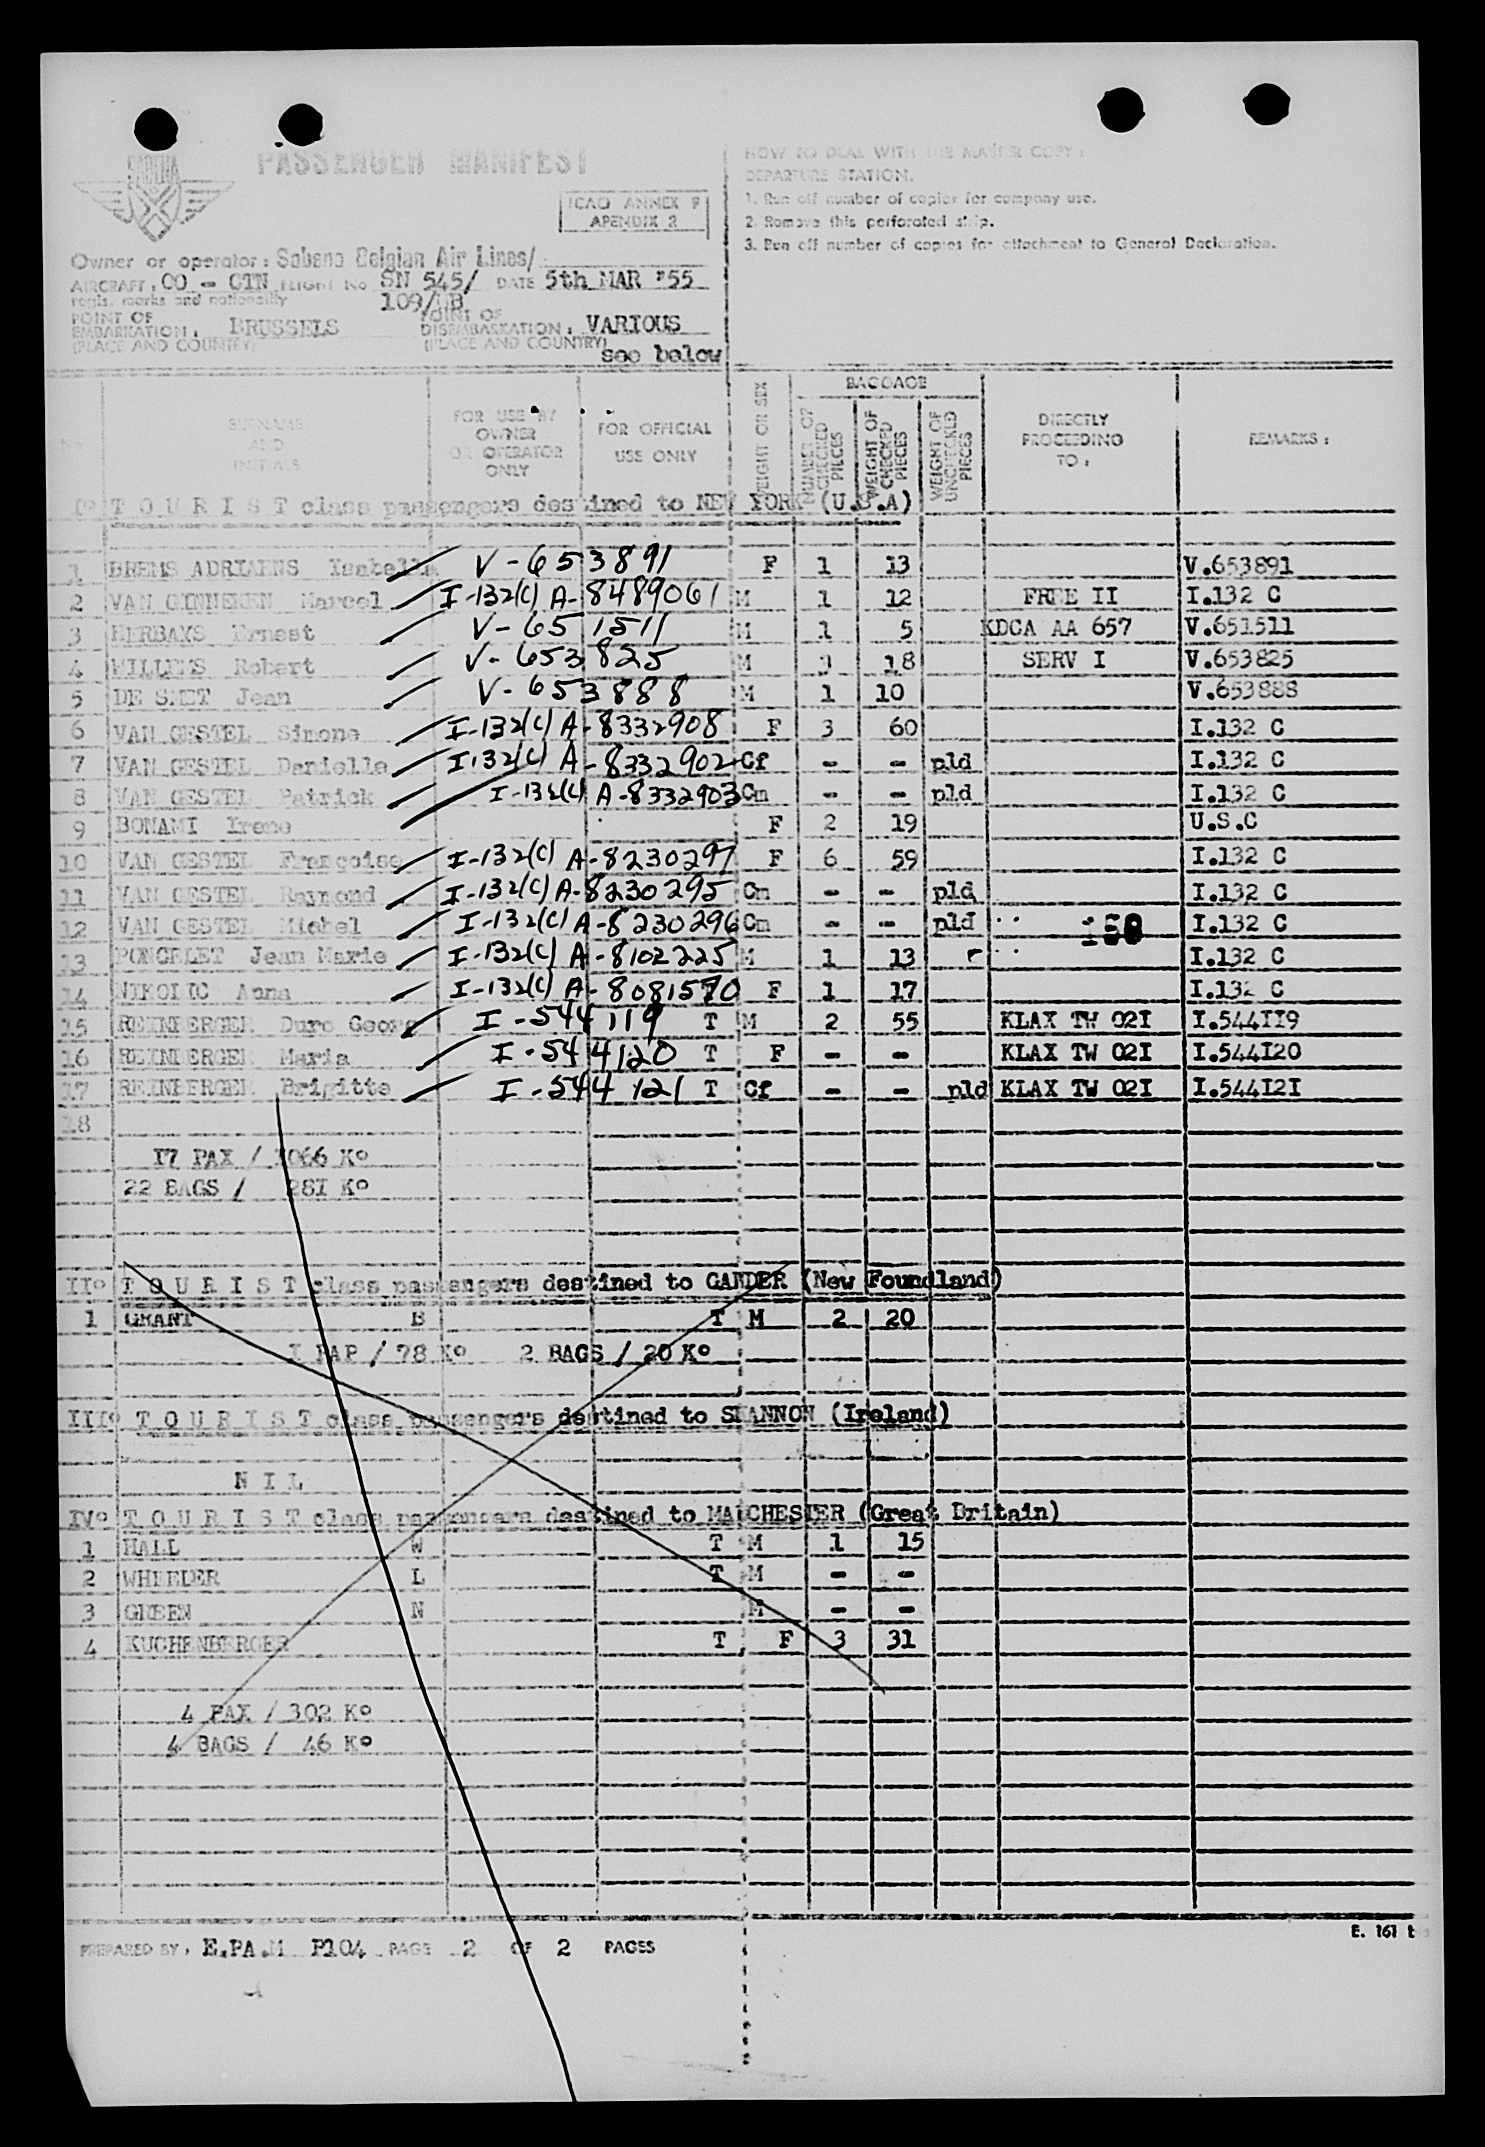 SABENA
PASSENGER MANIFEST
ICAO ANNEX 9
APENDIX 2
HOW TO DEAL WITH THE MASTER COPY :
DEPARTURE STATION.
1. Run off number of copies for company use.
2. Remove this perforated strip.
3. Run off number of copies for attachment to General Declaration.
Owner or operator : Sabena Belgian Air Lines/
AIRCRAFT : OO - CTN FLIGHT No SN 545/ DATE 5th MAR '55
regis. marks and nationality 109/UB
POINT OF EMBARKATION : BRUSSELS POINT OF DISEMBARKATION : VARIOUS
(PLACE AND COUNTRY) (PLACE AND COUNTRY) see below
No SURNAME AND INITIALS FOR USE BY OWNER OR OPERATOR ONLY FOR OFFICIAL USE ONLY WEIGHT OR SEX BAGGAGE NUMBER OF CHECKED PIECES WEIGHT OF CHECKED PIECES WEIGHT OF UNCHECKED PIECES DIRECTLY PROCEEDING TO : REMARKS :
I° T O U R I S T class passengers destined to NEW YORK (U.S.A)
1 BREMS ADRIAENS Isabella V-653891 F 1 13 V.653891
2 VAN GINNEKEN Marcel I-132(C) A-8489061 M 1 12 FREE II I.132 C
3 HERBAYS Ernest V-651511 M 1 5 KDCA AA 657 V.651511
4 WILLEMS Robert V-653825 M 3 18 SERV I V.653825
5 DE SMET Jean V-653888 M 1 10 V.653888
6 VAN GESTEL Simone I-132(C) A-8332908 F 3 60 I.132 C
7 VAN GESTEL Danielle I-132(C) A-8332902 Cf - - pld I.132 C
8 VAN GESTEL Patrick I-132(C) A-8332903 Cm - - pld I.132 C
9 BONAMI Irene F 2 19 U.S.C
10 VAN GESTEL Françoise I-132(C) A-8230297 F 6 59 I.132 C
11 VAN GESTEL Raymond I-132(C) A-8230295 Cm - - pld I.132 C
12 VAN GESTEL Michel I-132(C) A-8230296 Cm - - pld I.132 C
13 PONCELET Jean Marie I-132(C) A-8102225 M 1 13 I.132 C
14 NIKOLIC Anna I-132(C) A-8081570 F 1 17 I.132 C
15 REINBERGER Duro Georg I-544119 T M 2 55 KLAX TW 02I I.544II9
16 REINBERGER Maria I-544120 T F - - KLAX TW 02I I.544I20
17 REINBERGER Brigitte I-544121 T Cf - - pld KLAX TW 02I I.544I2I
18
I7 PAX / 1066 K°
22 BAGS / 28I K°
II° T O U R I S T class passengers destined to GANDER (New Foundland)
1 GRANT B T M 2 20
I PAP / 78 K° 2 BAGS / 20 K°
III° T O U R I S T class passengers destined to SHANNON (Ireland)
N I L
IV° T O U R I S T class passengers destined to MANCHESTER (Great Britain)
1 HALL W T M 1 15
2 WHEELER L T M - -
3 GREEN N M - -
4 KUCHENBERGER T F 3 31
4 PAX / 302 K°
4 BAGS / 46 K°
E. 161 t
PREPARED BY : E.PA.M P104 PAGE 2 OF 2 PAGES